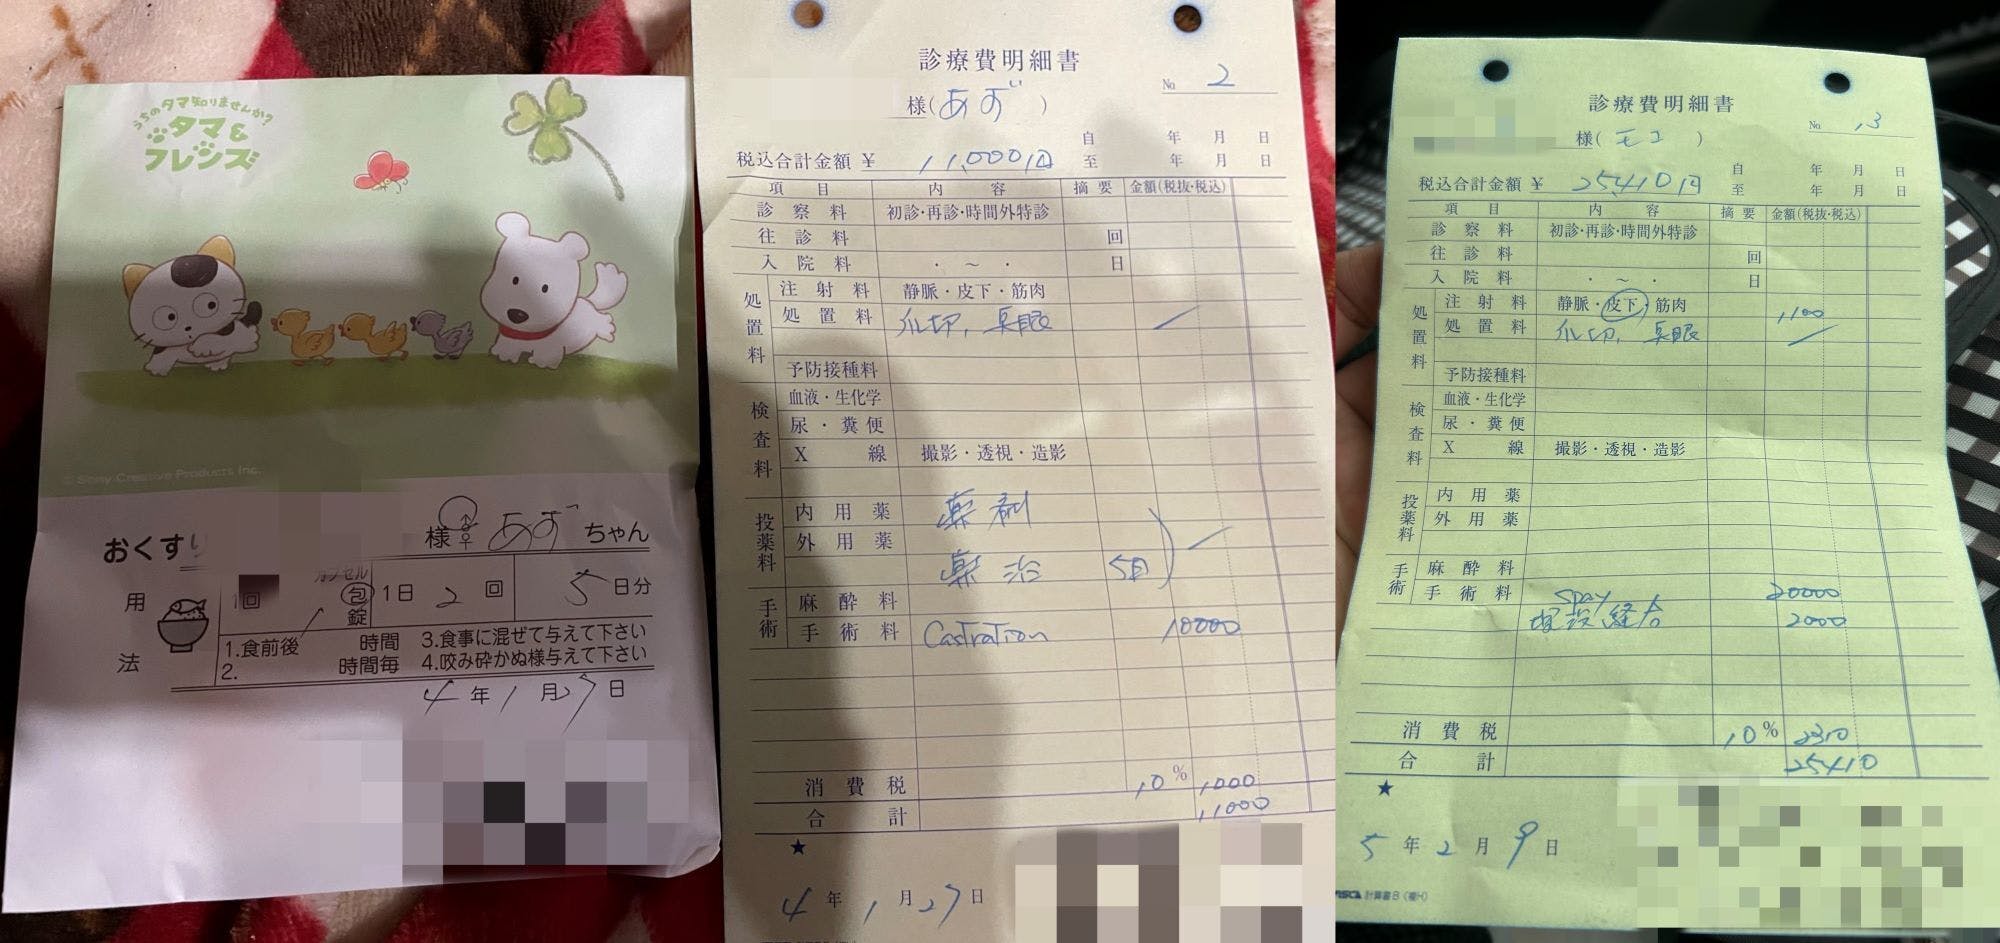 うちのタマ知りませんか?
タマ&
フレンズ
© Sony Creative Products Inc.
様 ♂♀ あず ちゃん
おくすり
用法
1回 カプセル 包 錠 1日 2 回 5 日分
1.食前後 時間 3.食事に混ぜて与えて下さい
2. 時間毎 4.咬み砕かぬ様与えて下さい
4 年 1 月 27 日
診療費明細書
No. 2
様(あず)
自 年 月 日
税込合計金額 ¥ 11,000円 至 年 月 日
項目 内容 摘要 金額(税抜・税込)
診察料 初診・再診・時間外特診
往診料 回
入院料 ・ ~ ・ 日
処置料
注射料 静脈・皮下・筋肉
処置料 爪切,
予防接種料
検査料
血液・生化学
尿・糞便
X線 撮影・透視・造影
投薬料
内用薬 薬剤
外用薬
薬治 5日
手術
麻酔料
手術料 Castration 10000
消費税 10% 1000
合計 11000
★
4 年 1 月 27 日
診療費明細書
No. 13
様(モコ)
自 年 月 日
税込合計金額 ¥ 25,410円 至 年 月 日
項目 内容 摘要 金額(税抜・税込)
診察料 初診・再診・時間外特診
往診料 回
入院料 ・ ~ ・ 日
処置料
注射料 静脈・皮下・筋肉 1,100
処置料 爪切,
予防接種料
検査料
血液・生化学
尿・糞便
X線 撮影・透視・造影
投薬料
内用薬
外用薬
手術
麻酔料
手術料 spay 20000
埋没縫合 2000
消費税 10% 2310
合計 25410
★
5 年 2 月 9 日
計算書B(複H)